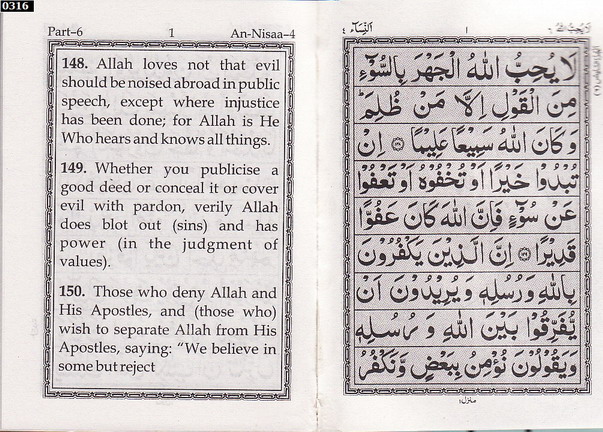 0316
Part–6 1 An-Nisaa–4
148. Allah loves not that evil
should be noised abroad in public
speech, except where injustice
has been done; for Allah is He
Who hears and knows all things.
149. Whether you publicise a
good deed or conceal it or cover
evil with pardon, verily Allah
does blot out (sins) and has
power (in the judgment of
values).
150. Those who deny Allah and
His Apostles, and (those who)
wish to separate Allah from His
Apostles, saying: “We believe in
some but reject
النِّسَآء ٤ ١
لَا يُحِبُّ اللّٰهُ الْجَهْرَ بِالسُّوْٓءِ
مِنَ الْقَوْلِ اِلَّا مَنْ ظُلِمَ ؕ
وَ كَانَ اللّٰهُ سَمِيْعًا عَلِيْمًا ﴿۱۴۸﴾ اِنْ
تُبْدُوْا خَيْرًا اَوْ تُخْفُوْهُ اَوْ تَعْفُوْا
عَنْ سُوْٓءٍ فَاِنَّ اللّٰهَ كَانَ عَفُوًّا
قَدِيْرًا ﴿۱۴۹﴾ اِنَّ الَّذِيْنَ يَكْفُرُوْنَ
بِاللّٰهِ وَ رُسُلِهٖ وَ يُرِيْدُوْنَ اَنْ
يُّفَرِّقُوْا بَيْنَ اللّٰهِ وَ رُسُلِهٖ
وَ يَقُوْلُوْنَ نُؤْمِنُ بِبَعْضٍ وَّ نَكْفُرُ
منزل١